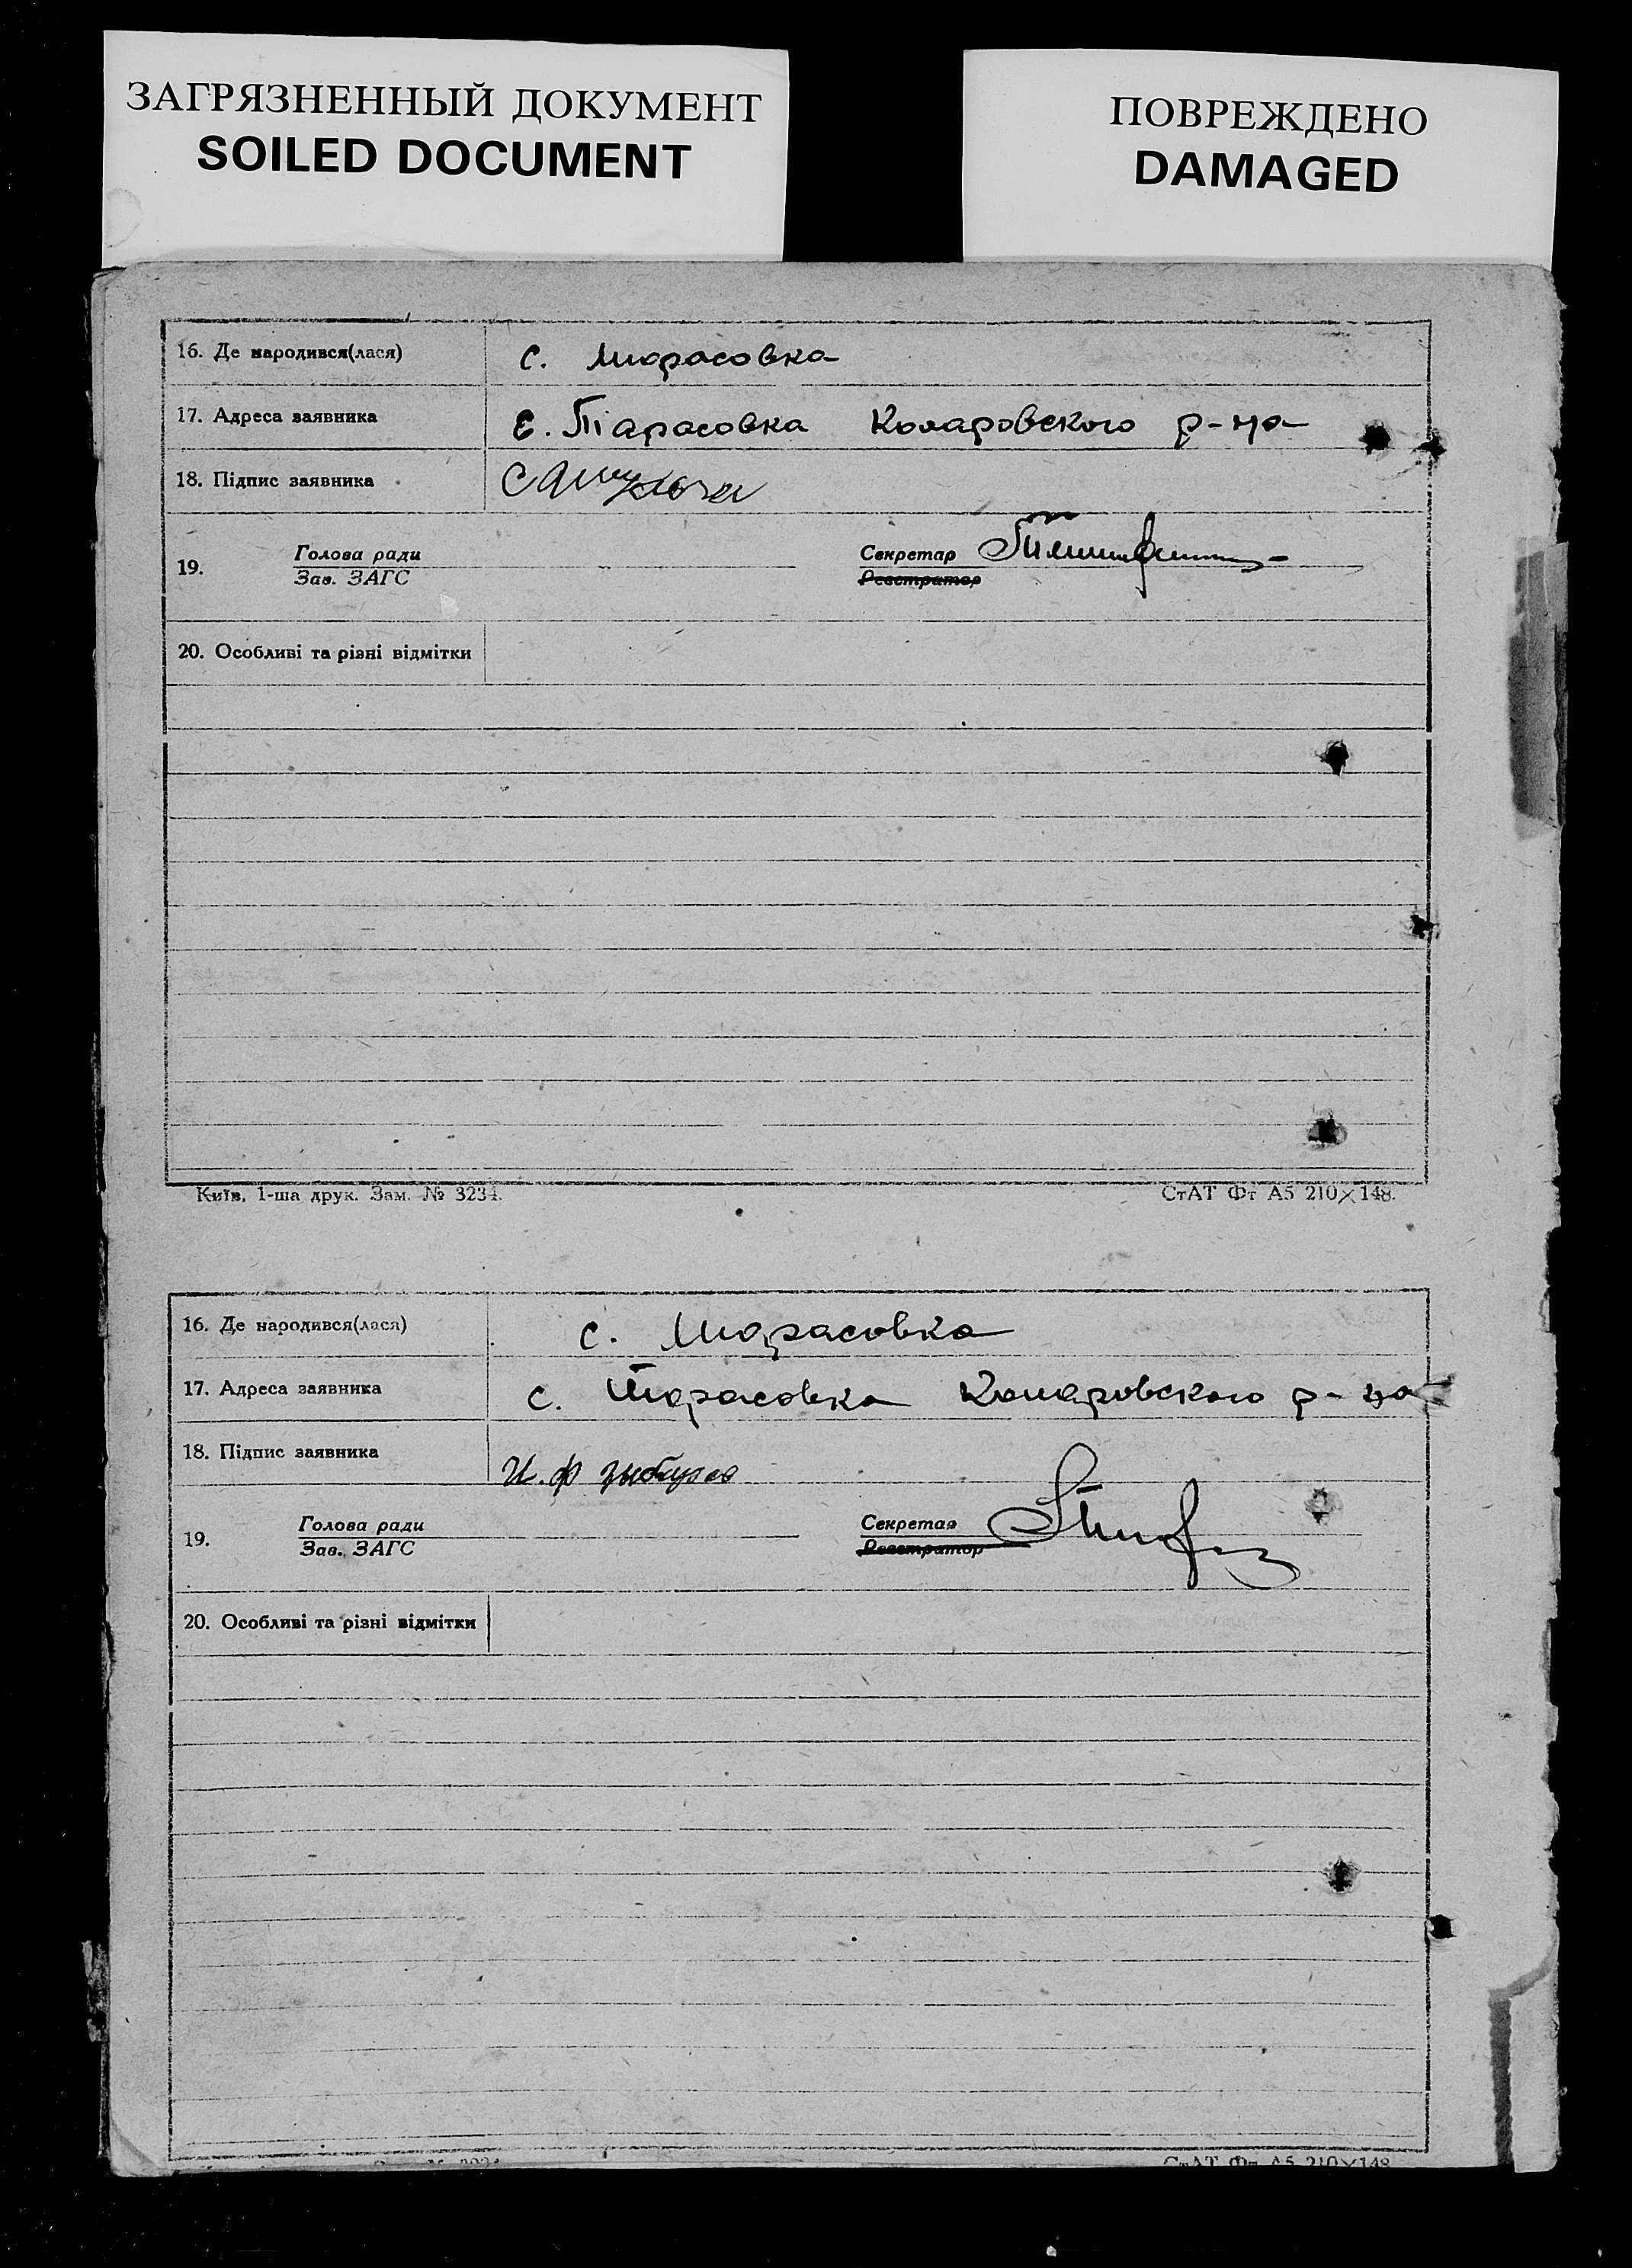 ЗАГРЯЗНЕННЫЙ ДОКУМЕНТ
SOILED DOCUMENT
ПОВРЕЖДЕНО
DAMAGED
16. Де народився(лася) с. Тарасовка
17. Адреса заявника с. Тарасовка Коларовского р-на
18. Підпис заявника
19. Голова ради Секретар
Зав. ЗАГС Реєстратор
20. Особливі та різні відмітки
Київ, 1-ша друк. Зам. № 3234. СтАТ Фт А5 210×148.
16. Де народився(лася) с. Тарасовка
17. Адреса заявника с. Тарасовка Коларовского р-на
18. Підпис заявника И. Ф
19. Голова ради Секретар
Зав. ЗАГС Реєстратор
20. Особливі та різні відмітки
СтАТ Фт А5 210×148